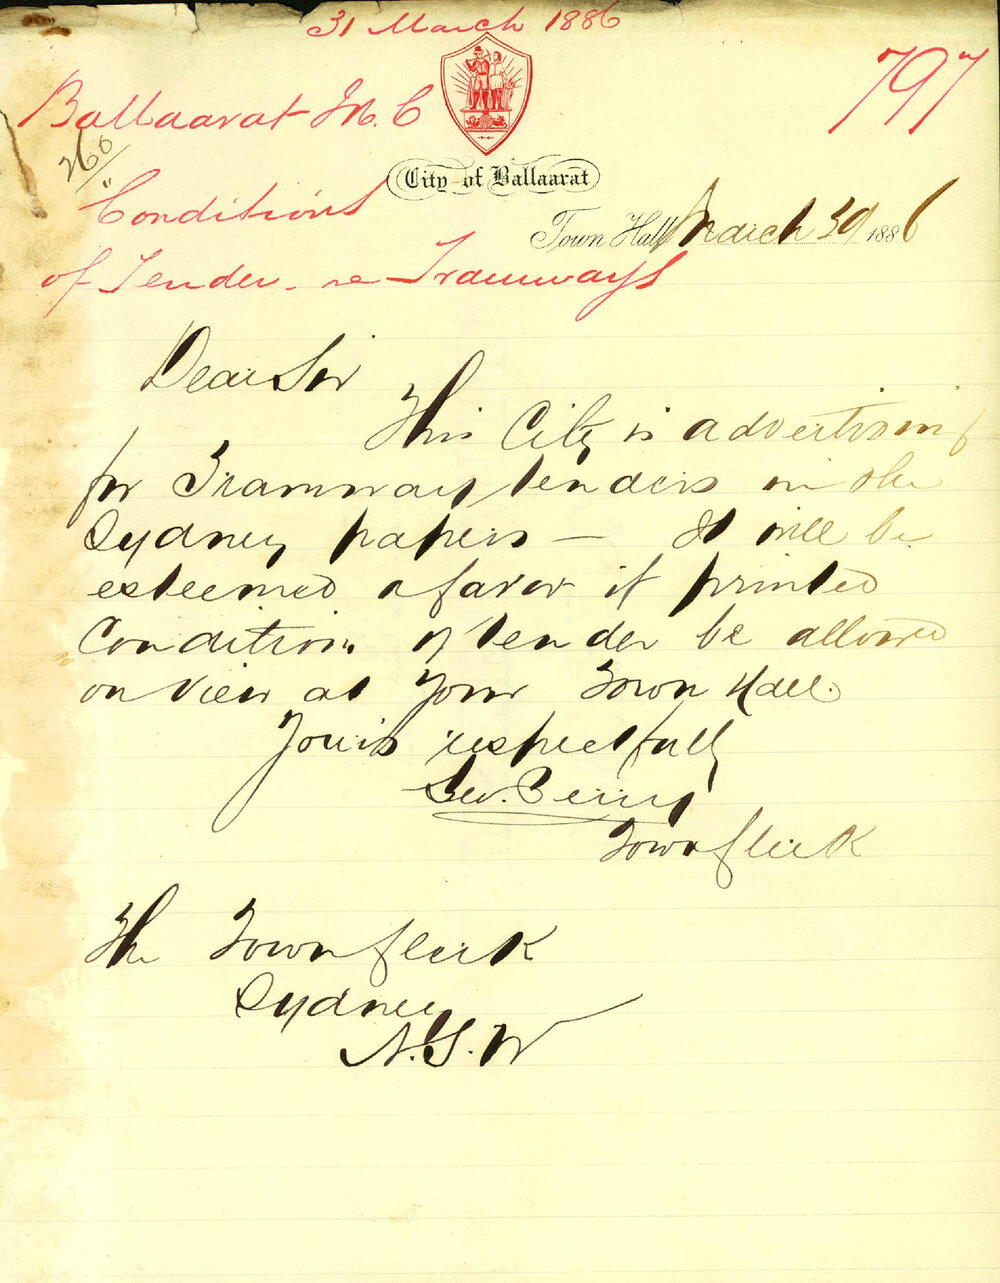 31 March 1886
797
Ballaarat M.C
260
City of Ballaarat
"Conditions
Town Hall March 30 1886
of Tender. re Tramways
Dear Sir
This City is advertising
for Tramway tenders in the
Sydney papers — It will be
esteemed a favor if printed
Conditions of tender be allowed
on view at your Town Hall.
Yours respectfully
Geo. Perry
Town Clerk
The Town Clerk
Sydney
N.S.W